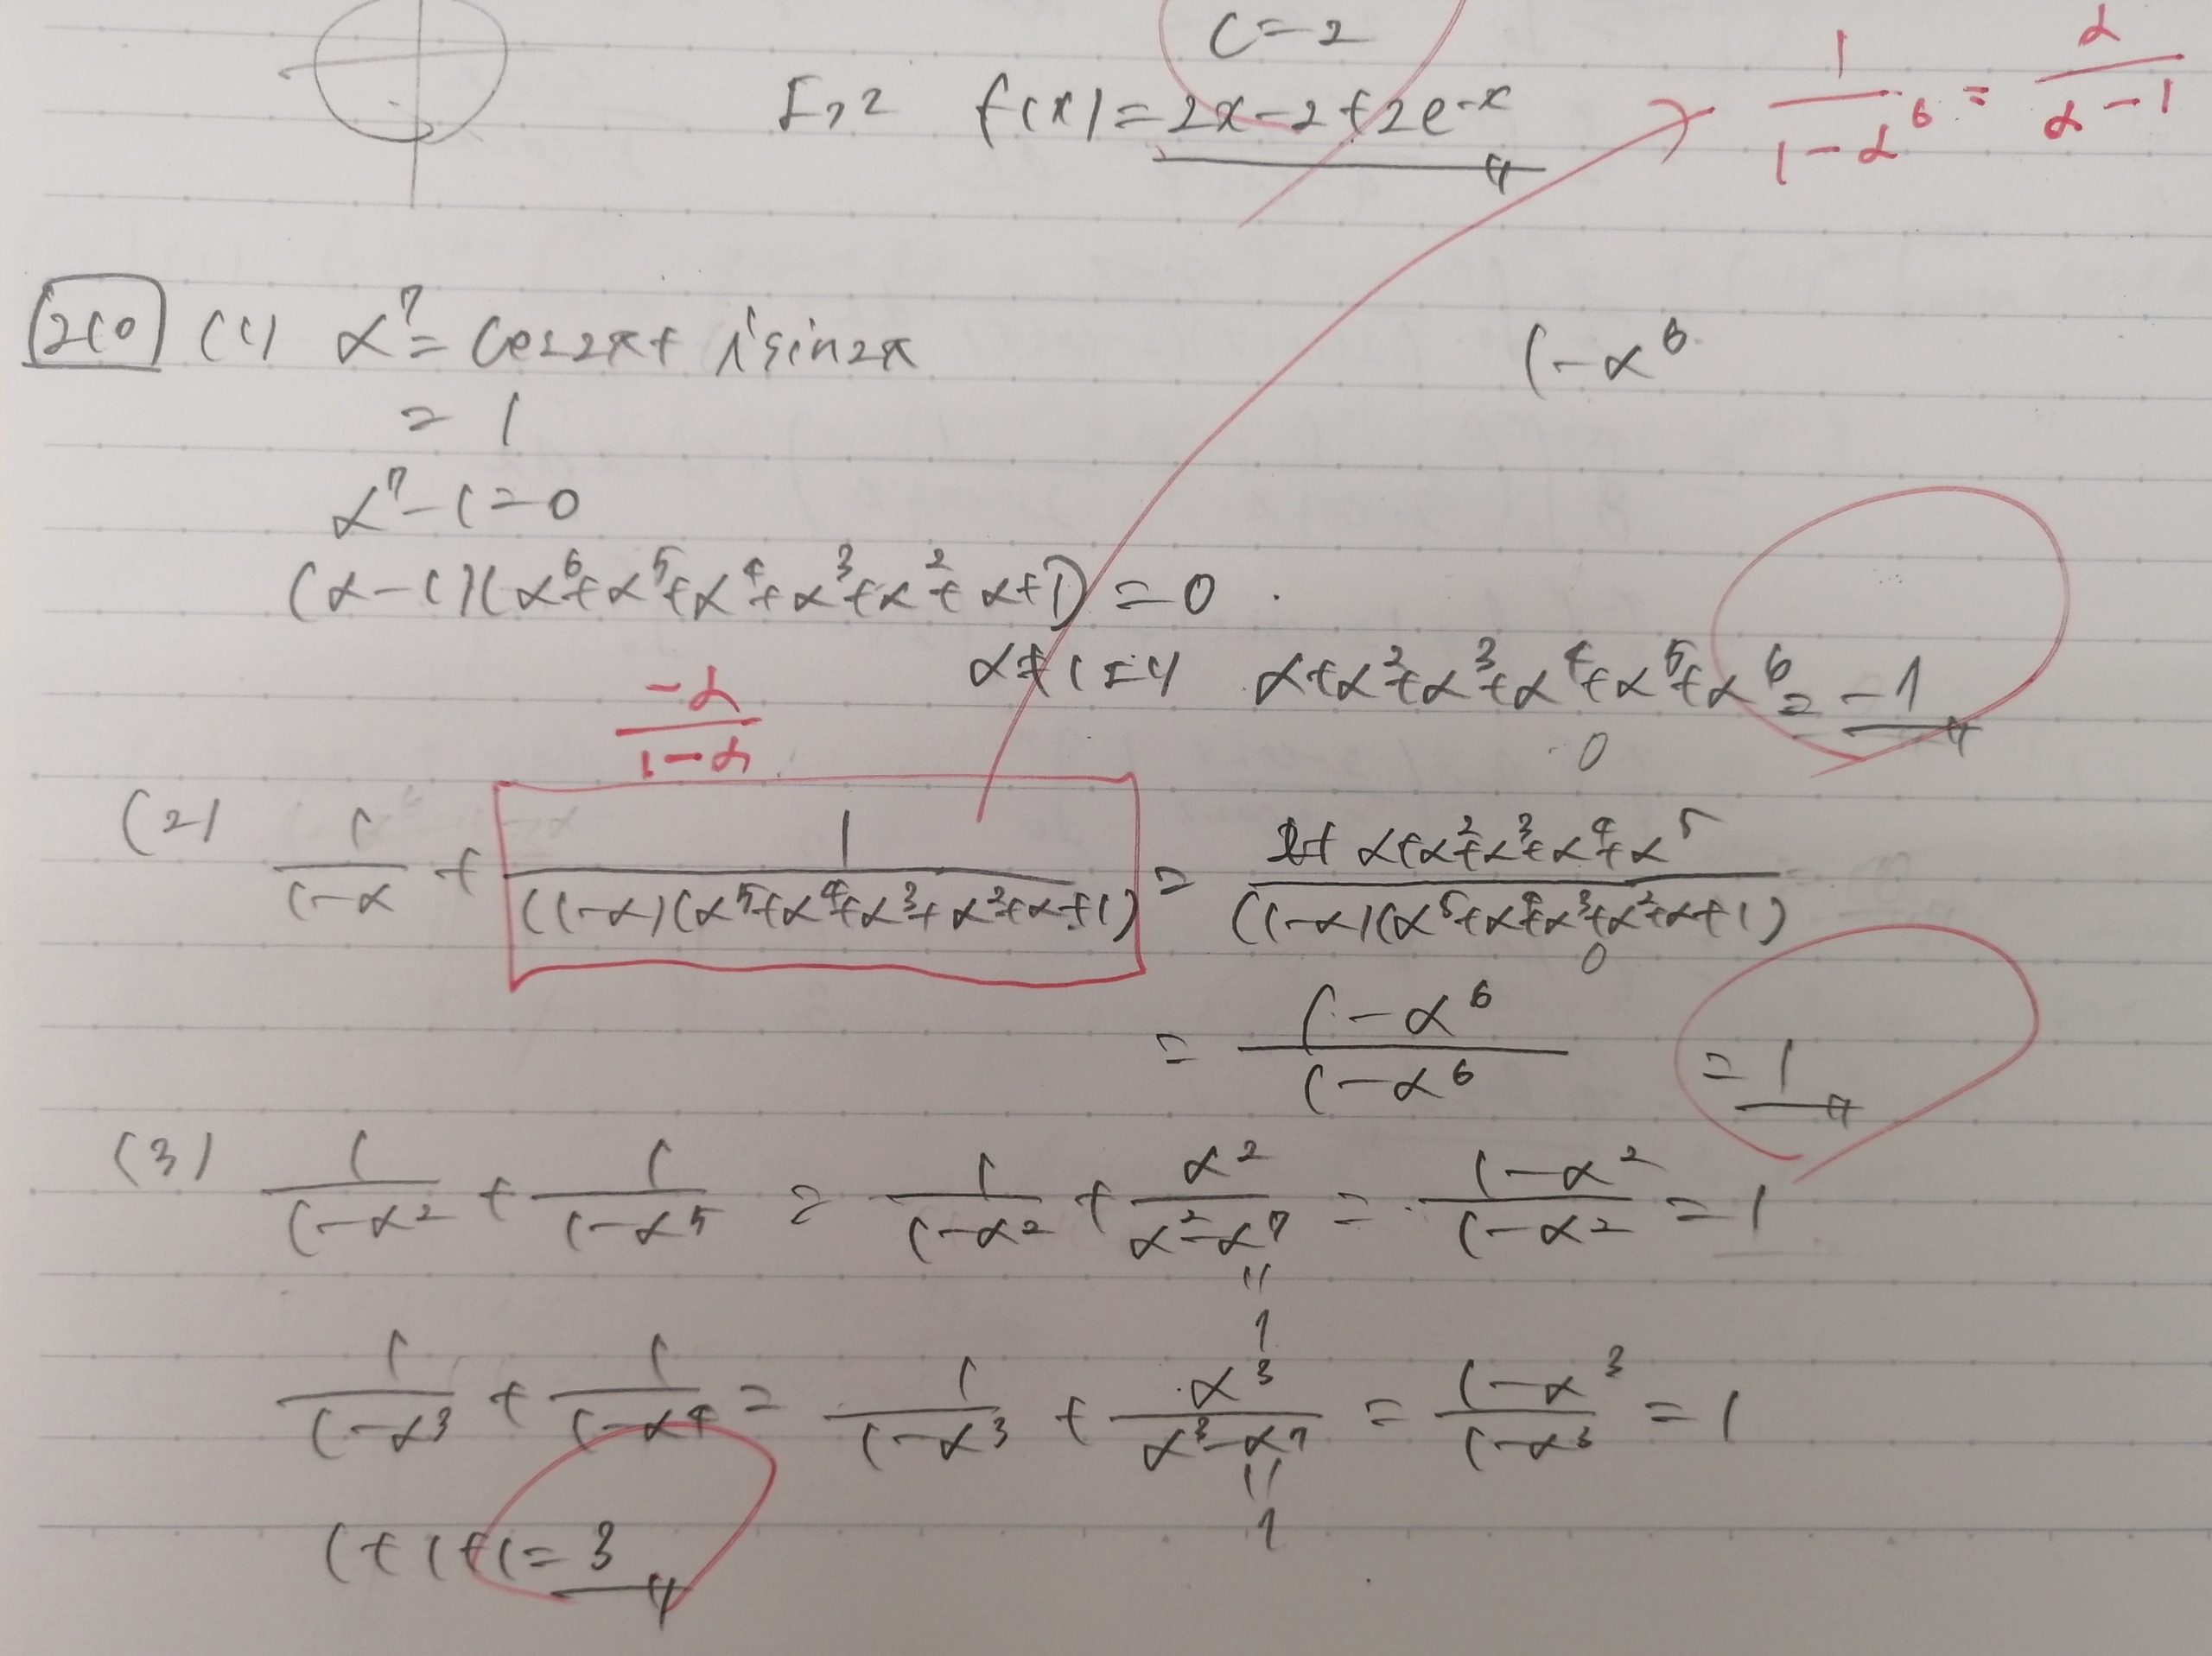 C=-2
より f(x)=2x-2+2e^{-x}
1/(1-α^6) = α/(α-1)
210 (1) α^7=cos2π+isin2π
(-α^6
= 1
α^7-1=0
(α-1)(α^6+α^5+α^4+α^3+α^2+α+1)=0
α≠1より α+α^2+α^3+α^4+α^5+α^6=-1
0
-α/(1-α)
(2) 1/(1-α) + 1/((1-α)(α^5+α^4+α^3+α^2+α+1)) = (2+α+α^2+α^3+α^4+α^5)/((1-α)(α^5+α^4+α^3+α^2+α+1))
0
= (1-α^6)/(1-α^6) = 1
(3) 1/(1-α^2) + 1/(1-α^5) = 1/(1-α^2) + α^2/(α^2-α^7) = (1-α^2)/(1-α^2) = 1
||
1
1/(1-α^3) + 1/(1-α^4) = 1/(1-α^3) + α^3/(α^3-α^7) = (1-α^3)/(1-α^3) = 1
||
1
1+1+1=3